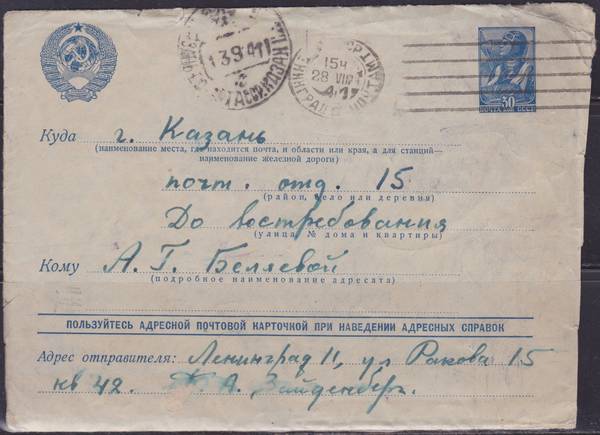 13 9 41
ТАССР КАЗАНЬ
15Ч
28 VIII
41
ЛЕНИНГРАД ПОЧТАМТ
30
ПОЧТА СССР
Куда г. Казань
(наименование места, где находится почта, и области или края, а для станций—
наименование железной дороги)
почт. отд. 15
(район, село или деревня)
До востребования
(улица, № дома и квартиры)
Кому А. Г. Беляевой
(подробное наименование адресата)
ПОЛЬЗУЙТЕСЬ АДРЕСНОЙ ПОЧТОВОЙ КАРТОЧКОЙ ПРИ НАВЕДЕНИИ АДРЕСНЫХ СПРАВОК
Адрес отправителя: Ленинград 11, ул Ракова 15
кв 42. А. Зайденберг.